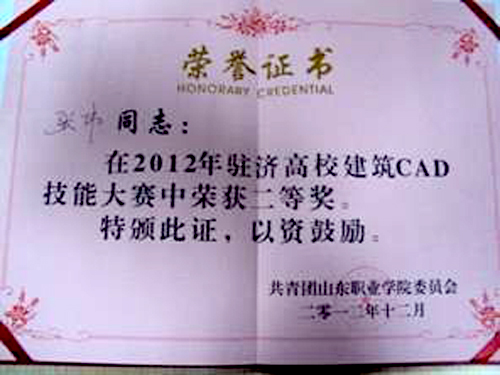 荣誉证书
HONORARY CREDENTIAL
同志：
在2012年驻济高校建筑CAD
技能大赛中荣获二等奖。
特颁此证，以资鼓励。
共青团山东职业学院委员会
二零一二年十二月